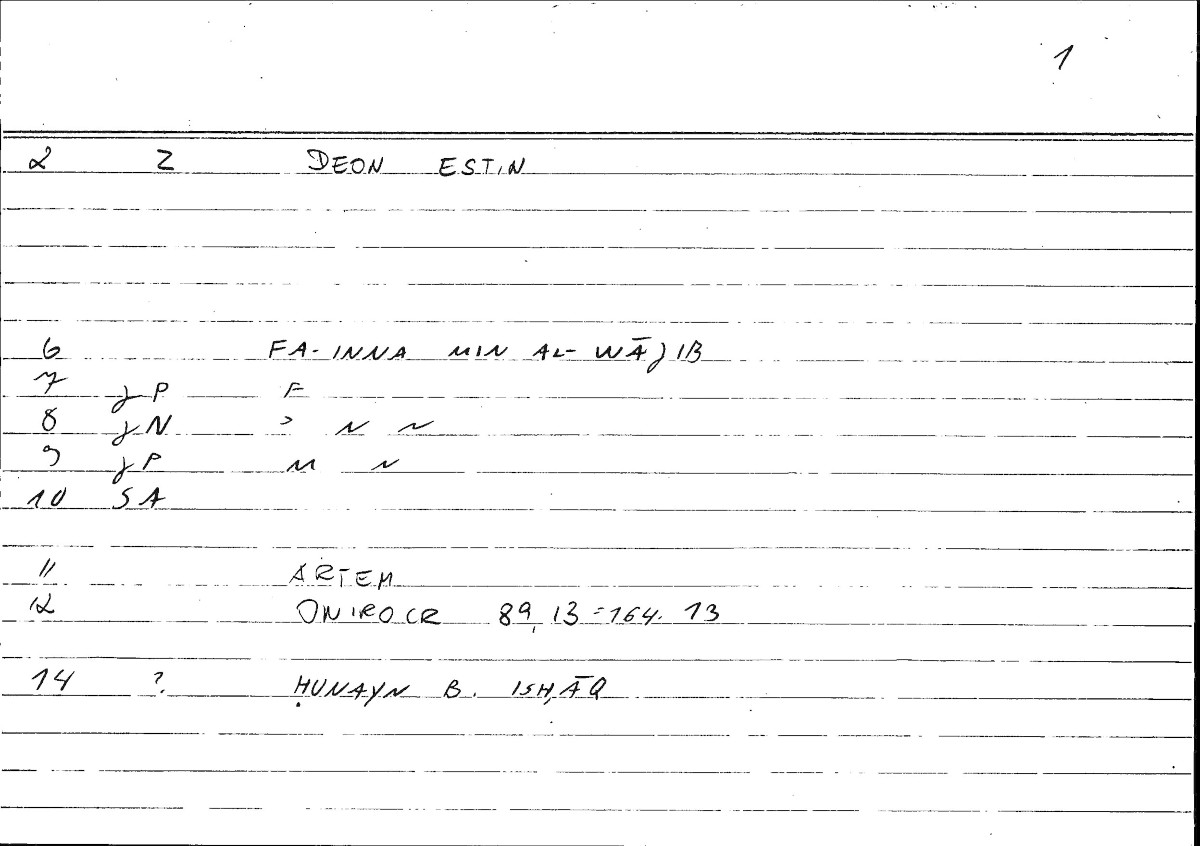 1
2 Z DEON ESTIN
6 FA-INNA MIN AL-WĀJIB
7 JP F
8 JN ʾ N N
9 JP M N
10 SA
11 ARTEM
12 ONIROCR 89,13=164.13
14 ? ḤUNAYN B. ISḤĀQ